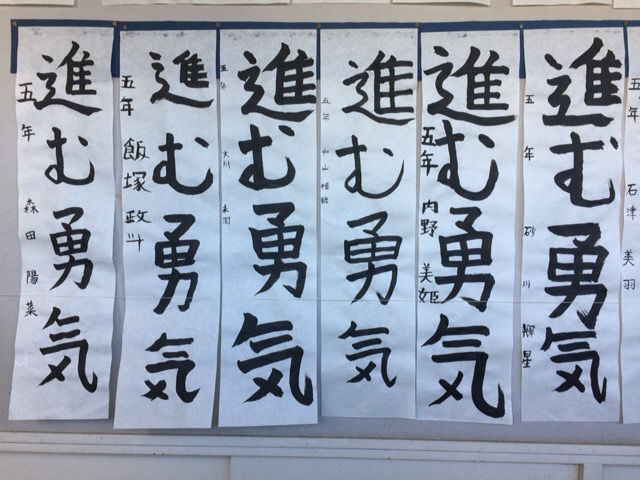 五年 石津 美羽
進む勇気
五年 砂川 輝星
進む勇気
五年 内野 美姫
進む勇気
五年
進む勇気
五年 大川
進む勇気
五年 飯塚 政斗
進む勇気
五年 森田 陽菜